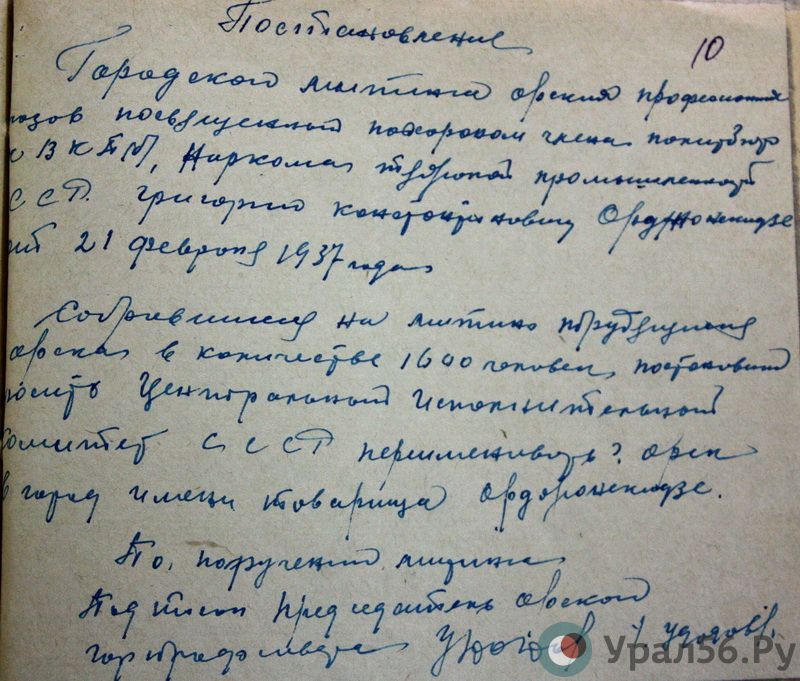 Постановление
10
Городского митинга орских професиональ
юзов посвященный похоронам члена политбюро
ВКПб, Наркома тяжолой промышленност
ССР. григорию константиновичу Орджоникидзе
от 21 февроля 1937 года
Собравшиися на митинг трудящиися
орска в количестве 1600 человек постановил
росить Центральный Исполнительной
комитет СССР переименовать г. орск
в город имени товарища Орджоникидзе.
По, поручению митинга
Подписал Председатель орской
горпрофсовета Удодов / Удодов/.
Урал56.Ру